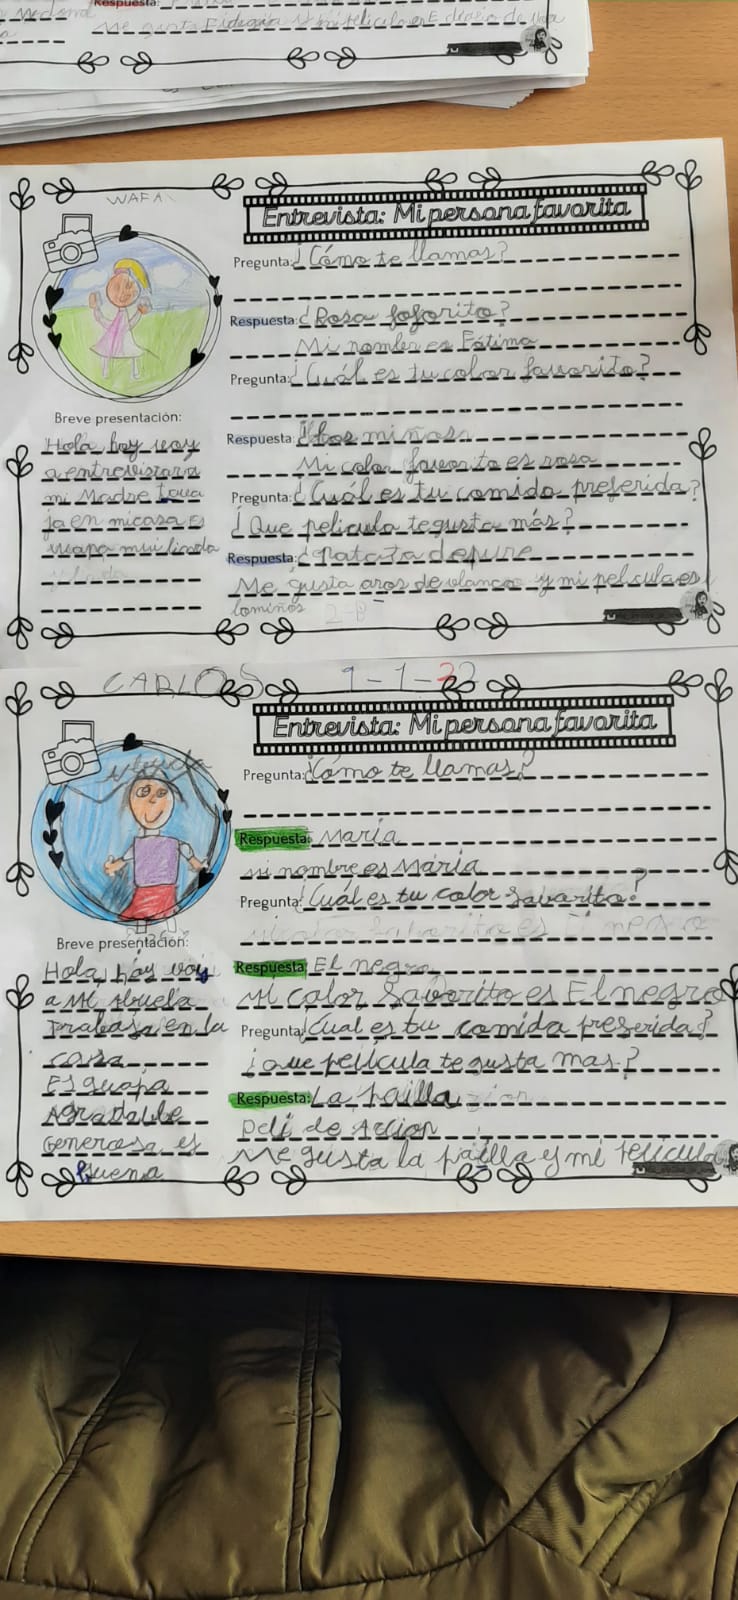 Respuesta:
Me gusta Fideguia y mi pelicula es E diario de
WAFA
Entrevista: Mi persona favorita
Pregunta: ¿Cómo te llamas?
Respuesta: ¿Rosa foforito?
Mi nombre es Fátima
Pregunta: ¿Cuál es tu color favorito?
Breve presentación:
Hola hoy voy
a entrevistara
mi Madre traua
ja en micasa es
guapa mui linda
Respuesta: los miños
Mi color favorito es rosa
Pregunta: ¿Cuál es tu comida preferida?
¿Que pelicula te gusta más?
Respuesta: ¿patata depure
Me gusta aros de blanco y mi pelcula es
lominos
CARLOS 9-1-22
Entrevista: Mi persona favorita
Pregunta: ¿Cómo te llamas?
Respuesta: María
mi nombre es María
Pregunta: ¿Cuál es tu color favorito?
Breve presentación:
Hola, hoy voy
a Mi abuela
Trabaja en la
casa
Es guapa
Agradable
Generosa es
Buena
Respuesta: El negro
Mi color favorito es El negro
Pregunta: ¿Cual es tu comida preferida?
¿Que película te gusta mas?
Respuesta: La pailla
peli de Accion
Me gusta la pailla y mi pelicula